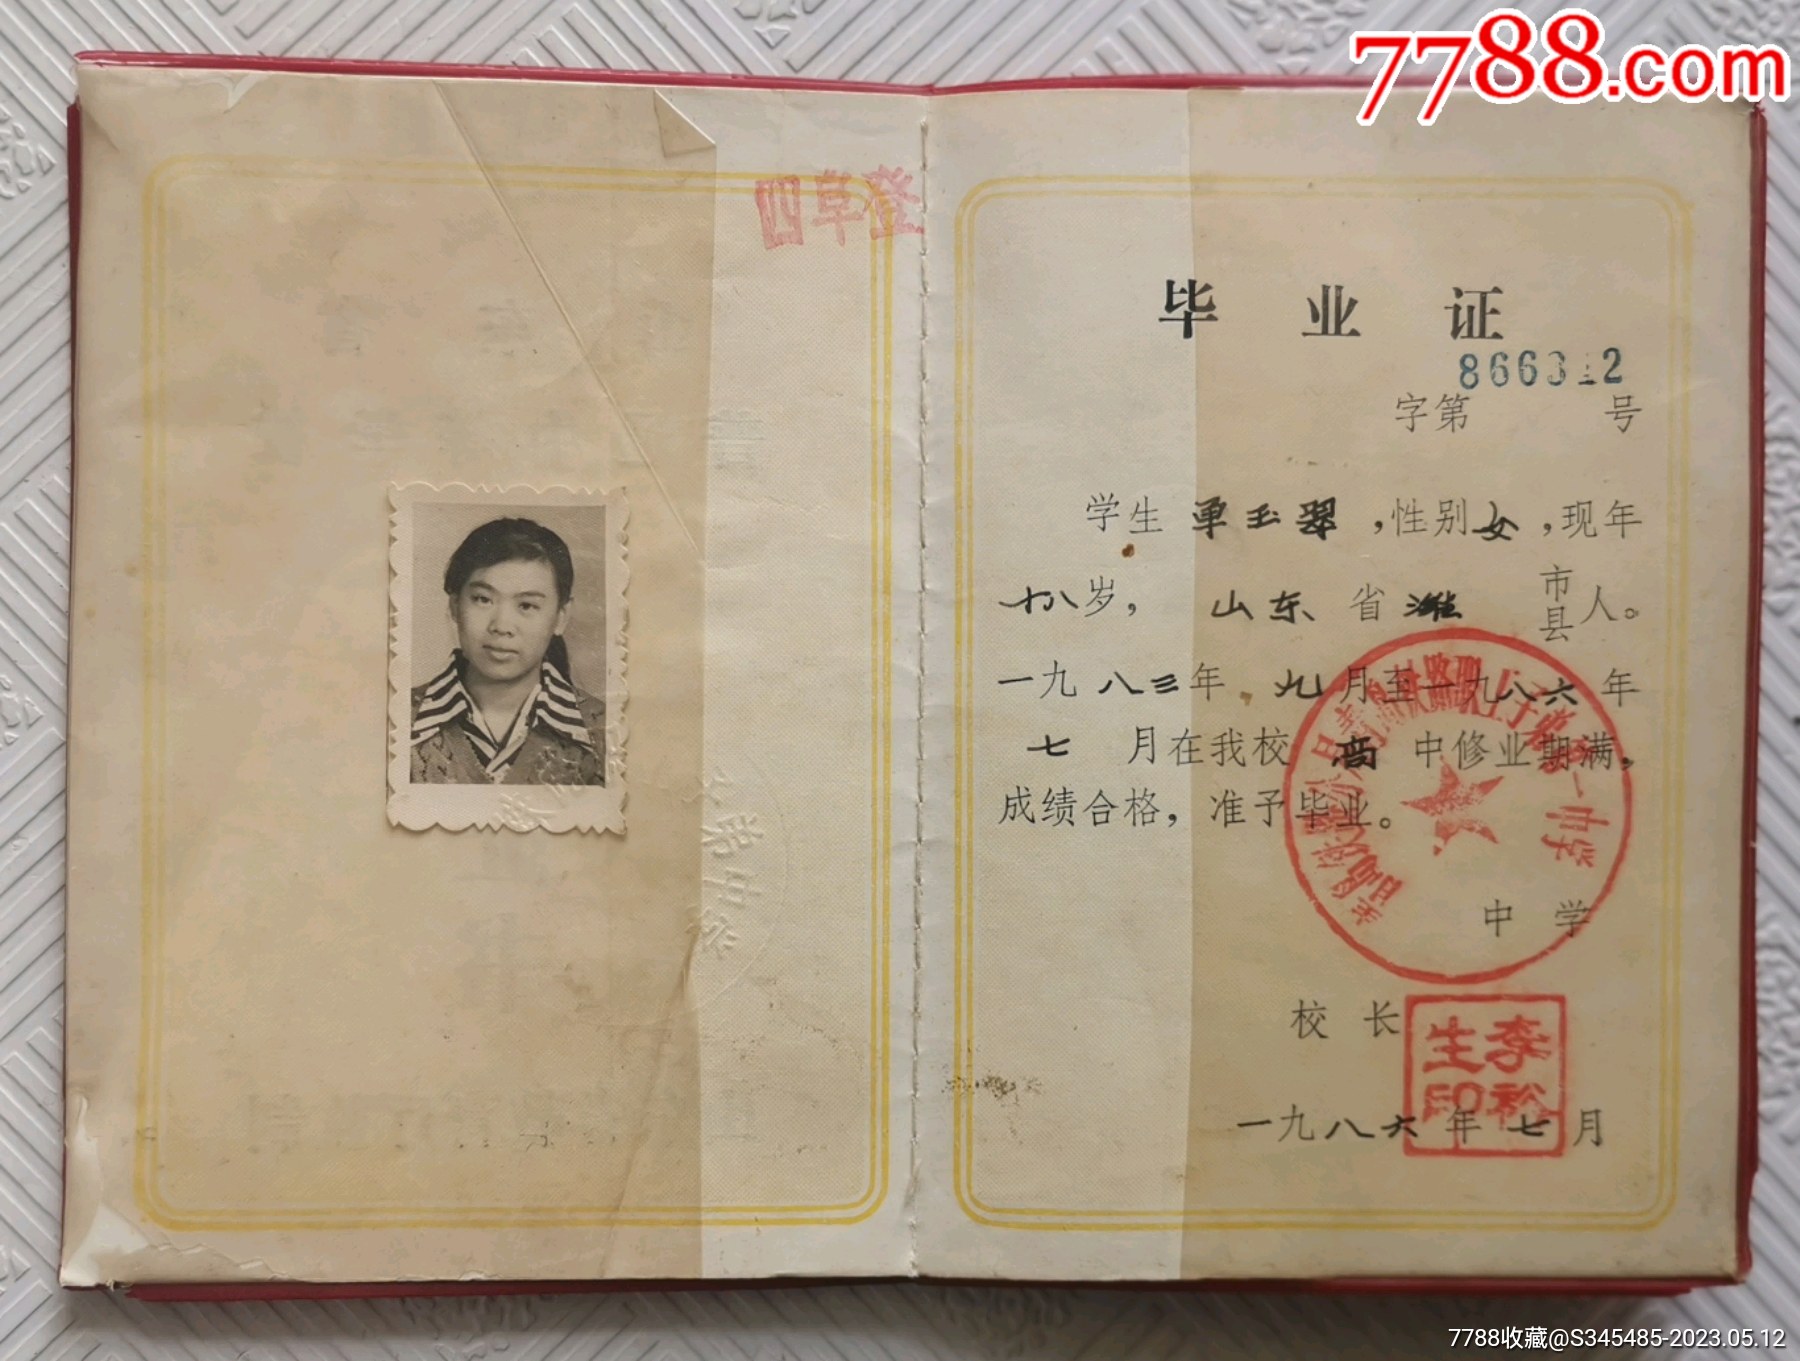 7788.com
四阜登
毕业证
866312
字第 号
学生 单玉翠,性别女,现年
十八岁, 山东省潍 市县人。
一九八三年 九月至一九八六年
七 月在我校 高 中修业期满,
成绩合格,准予毕业。
中学
校长
李松生印
一九八六年七月
7788收藏@S345485-2023.05.12